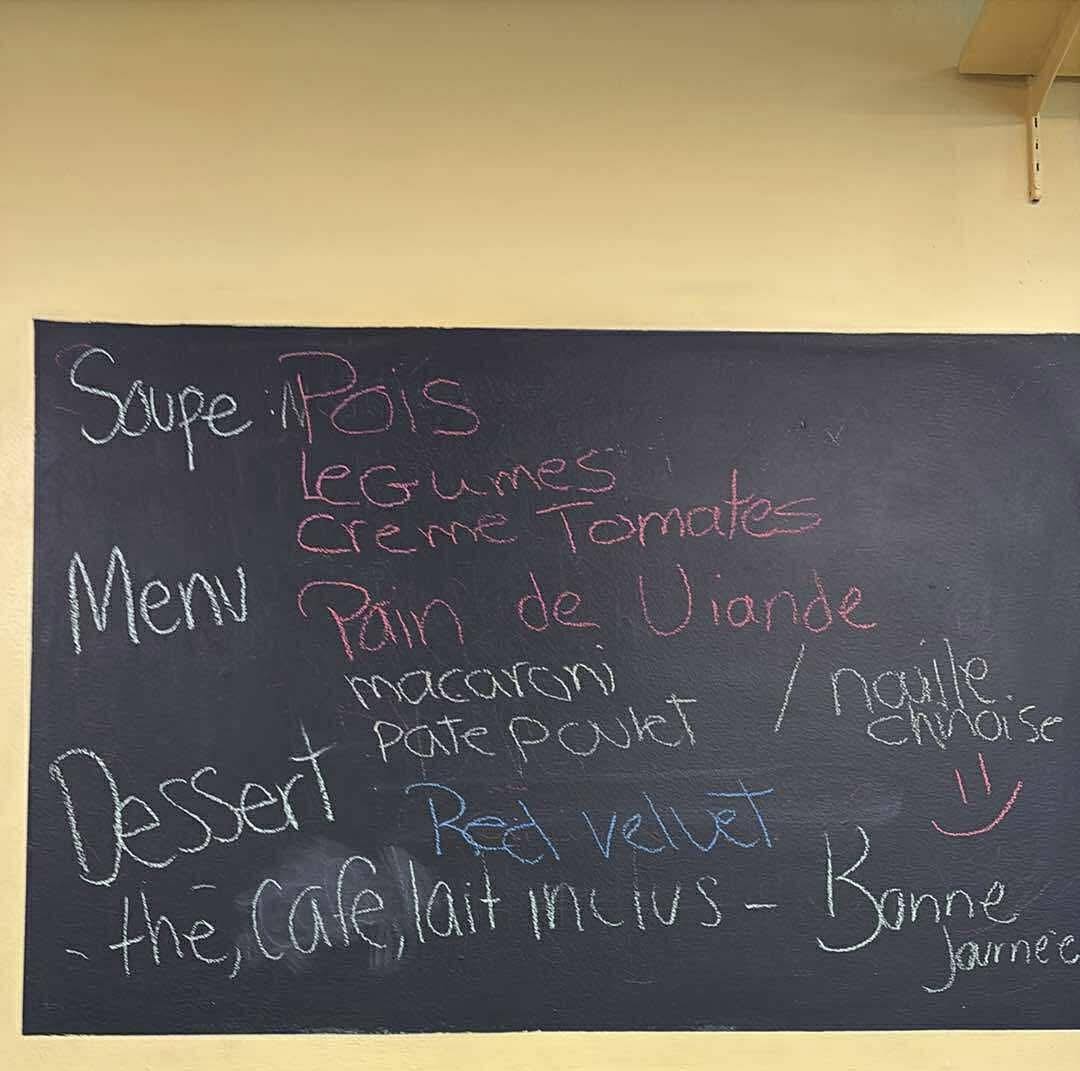 Soupe : Pois
Legumes
creme Tomates
Menu Pain de Viande
macaroni / nouille
pate poulet chinoise
Dessert Red velvet
- thé, Café, lait inclus - Bonne
Journée